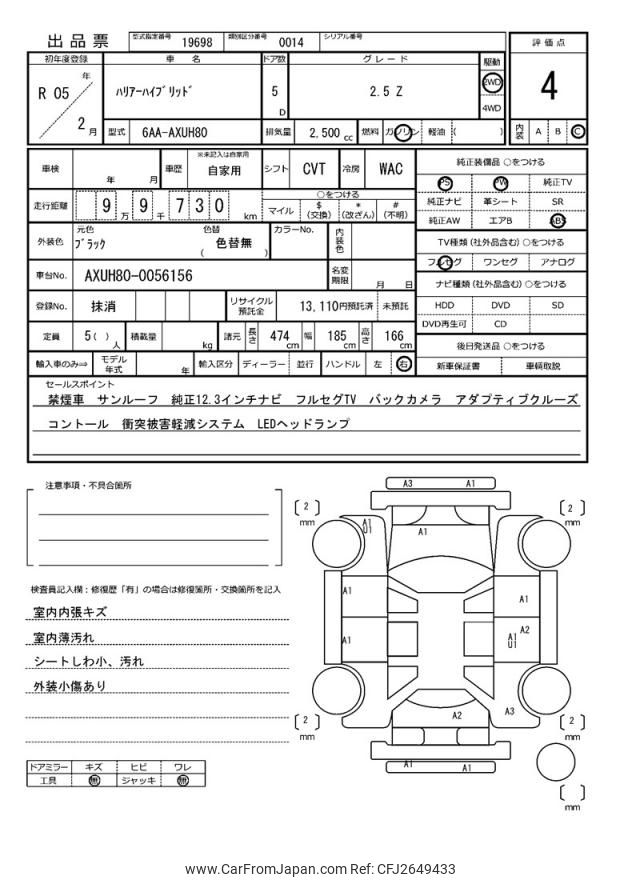 出品票 型式指定番号 19698 類別区分番号 0014 シリアル番号
評価点
4
内装 A B C
初年度登録 車名 ドア数 グレード 駆動
R 05 年 2 月
ハリアーハイブリッド 5 D 2.5 Z 2WD 4WD
型式 6AA-AXUH80 排気量 2,500 cc 燃料 ガソリン 軽油 ( )
車検 年 月 車歴 ※未記入は自家用 自家用 シフト CVT 冷房 WAC
走行距離 9 万 9 千 7 3 0 km
○をつける
マイル $(交換) *(改ざん) #(不明)
外装色 元色 ブラック 色替 ( 色替無 ) カラーNo. 内装色
車台No. AXUH80-0056156 名変期限 月 日
登録No. 抹消 リサイクル預託金 13,110円預託済 未預託
定員 5( ) 人 積載量 kg 諸元 長さ 474 cm 幅 185 cm 高さ 166 cm
輸入車のみ⇒ モデル年式 年 輸入区分 ディーラー 並行 ハンドル 左 右
純正装備品 ○をつける
PS PW 純正TV
純正ナビ 革シート SR
純正AW エアB ABS
TV種類 (社外品含む) ○をつける
フルセグ ワンセグ アナログ
ナビ種類 (社外品含む) ○をつける
HDD DVD SD
DVD再生可 CD
後日発送品 ○をつける
新車保証書 車輌取説
セールスポイント
禁煙車 サンルーフ 純正12.3インチナビ フルセグTV バックカメラ アダプティブクルーズ
コントロール 衝突被害軽減システム LEDヘッドランプ
注意事項・不具合箇所
検査員記入欄:修復歴「有」の場合は修復箇所・交換箇所を記入
室内内張キズ
室内薄汚れ
シートしわ小、汚れ
外装小傷あり
ドアミラー キズ ヒビ ワレ
工具 無 ジャッキ 無
A3 A1
[ 2 ] mm
[ 2 ] mm
A1
U1
A1
A1
A1
A1
A2
A1
U1
A2
A3
[ 2 ] mm
[ 2 ] mm
A1 A1
[ ] mm
www.CarFromJapan.com Ref: CFJ2649433